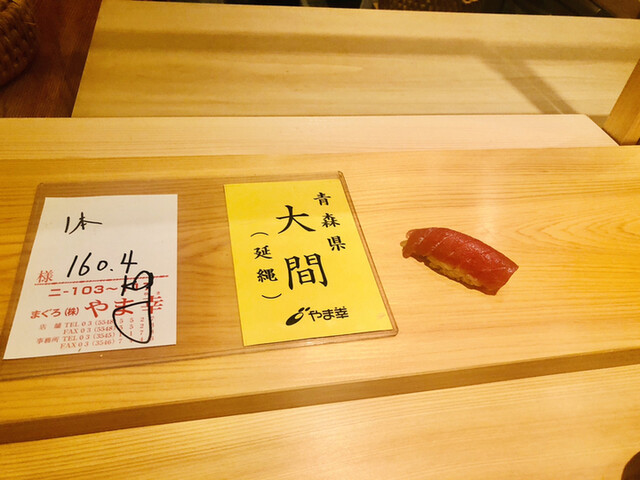 1本
様 160.4
ニ-103~
まぐろ(株)やま幸
店舗 TEL 03(3548)
FAX 03(3548)
事務所 TEL 03(3545)
FAX 03(3546)
青森県
大間
(延縄)
やま幸